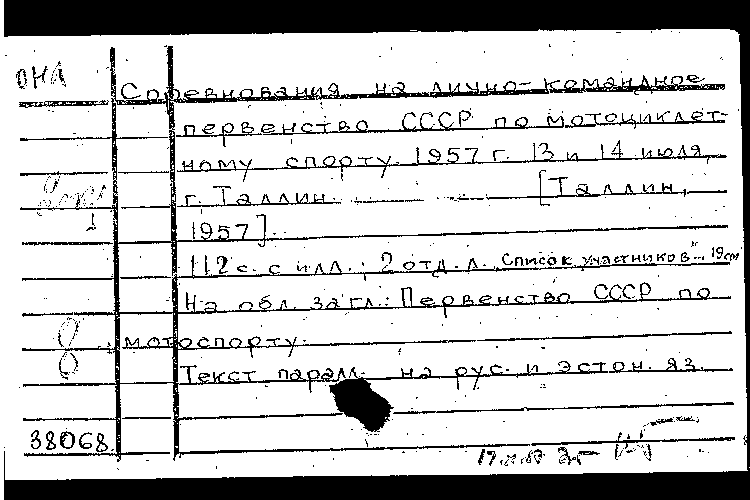 ОНА
Соревнования на лично-командное
первенство СССР по мотоциклет-
ному спорту. 1957 г. 13 и 14 июля,
г. Таллин. [Таллин,
1957].
112 с. с илл.; 2 отд. л. „Список участников". 19 см
На обл. загл.: Первенство СССР по
мотоспорту.
Текст паралл. на рус. и эстон. яз.
38068